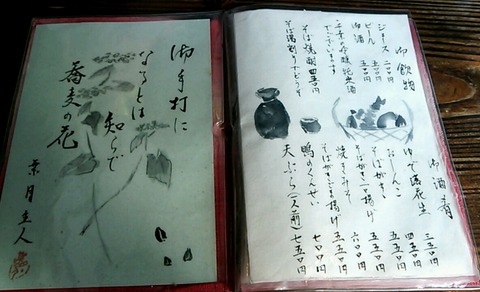 御飲物
ジュース 二〇〇円
ビール
御酒 五〇〇円
純米酒
でございます
そば焼酎 四五〇円
そば湯割りでどうぞ
御酒肴
ゆで落花生 三五〇円
おしんこ 四五〇円
そばがき 五五〇円
そばがき一口揚げ 五五〇円
焼きみそ
揚げ 五五〇円
鴨のくんせい 七〇〇円
天ぷら(一人前) 七五〇円
御手打に
なるとは知らで
蕎麦の花
葉月主人